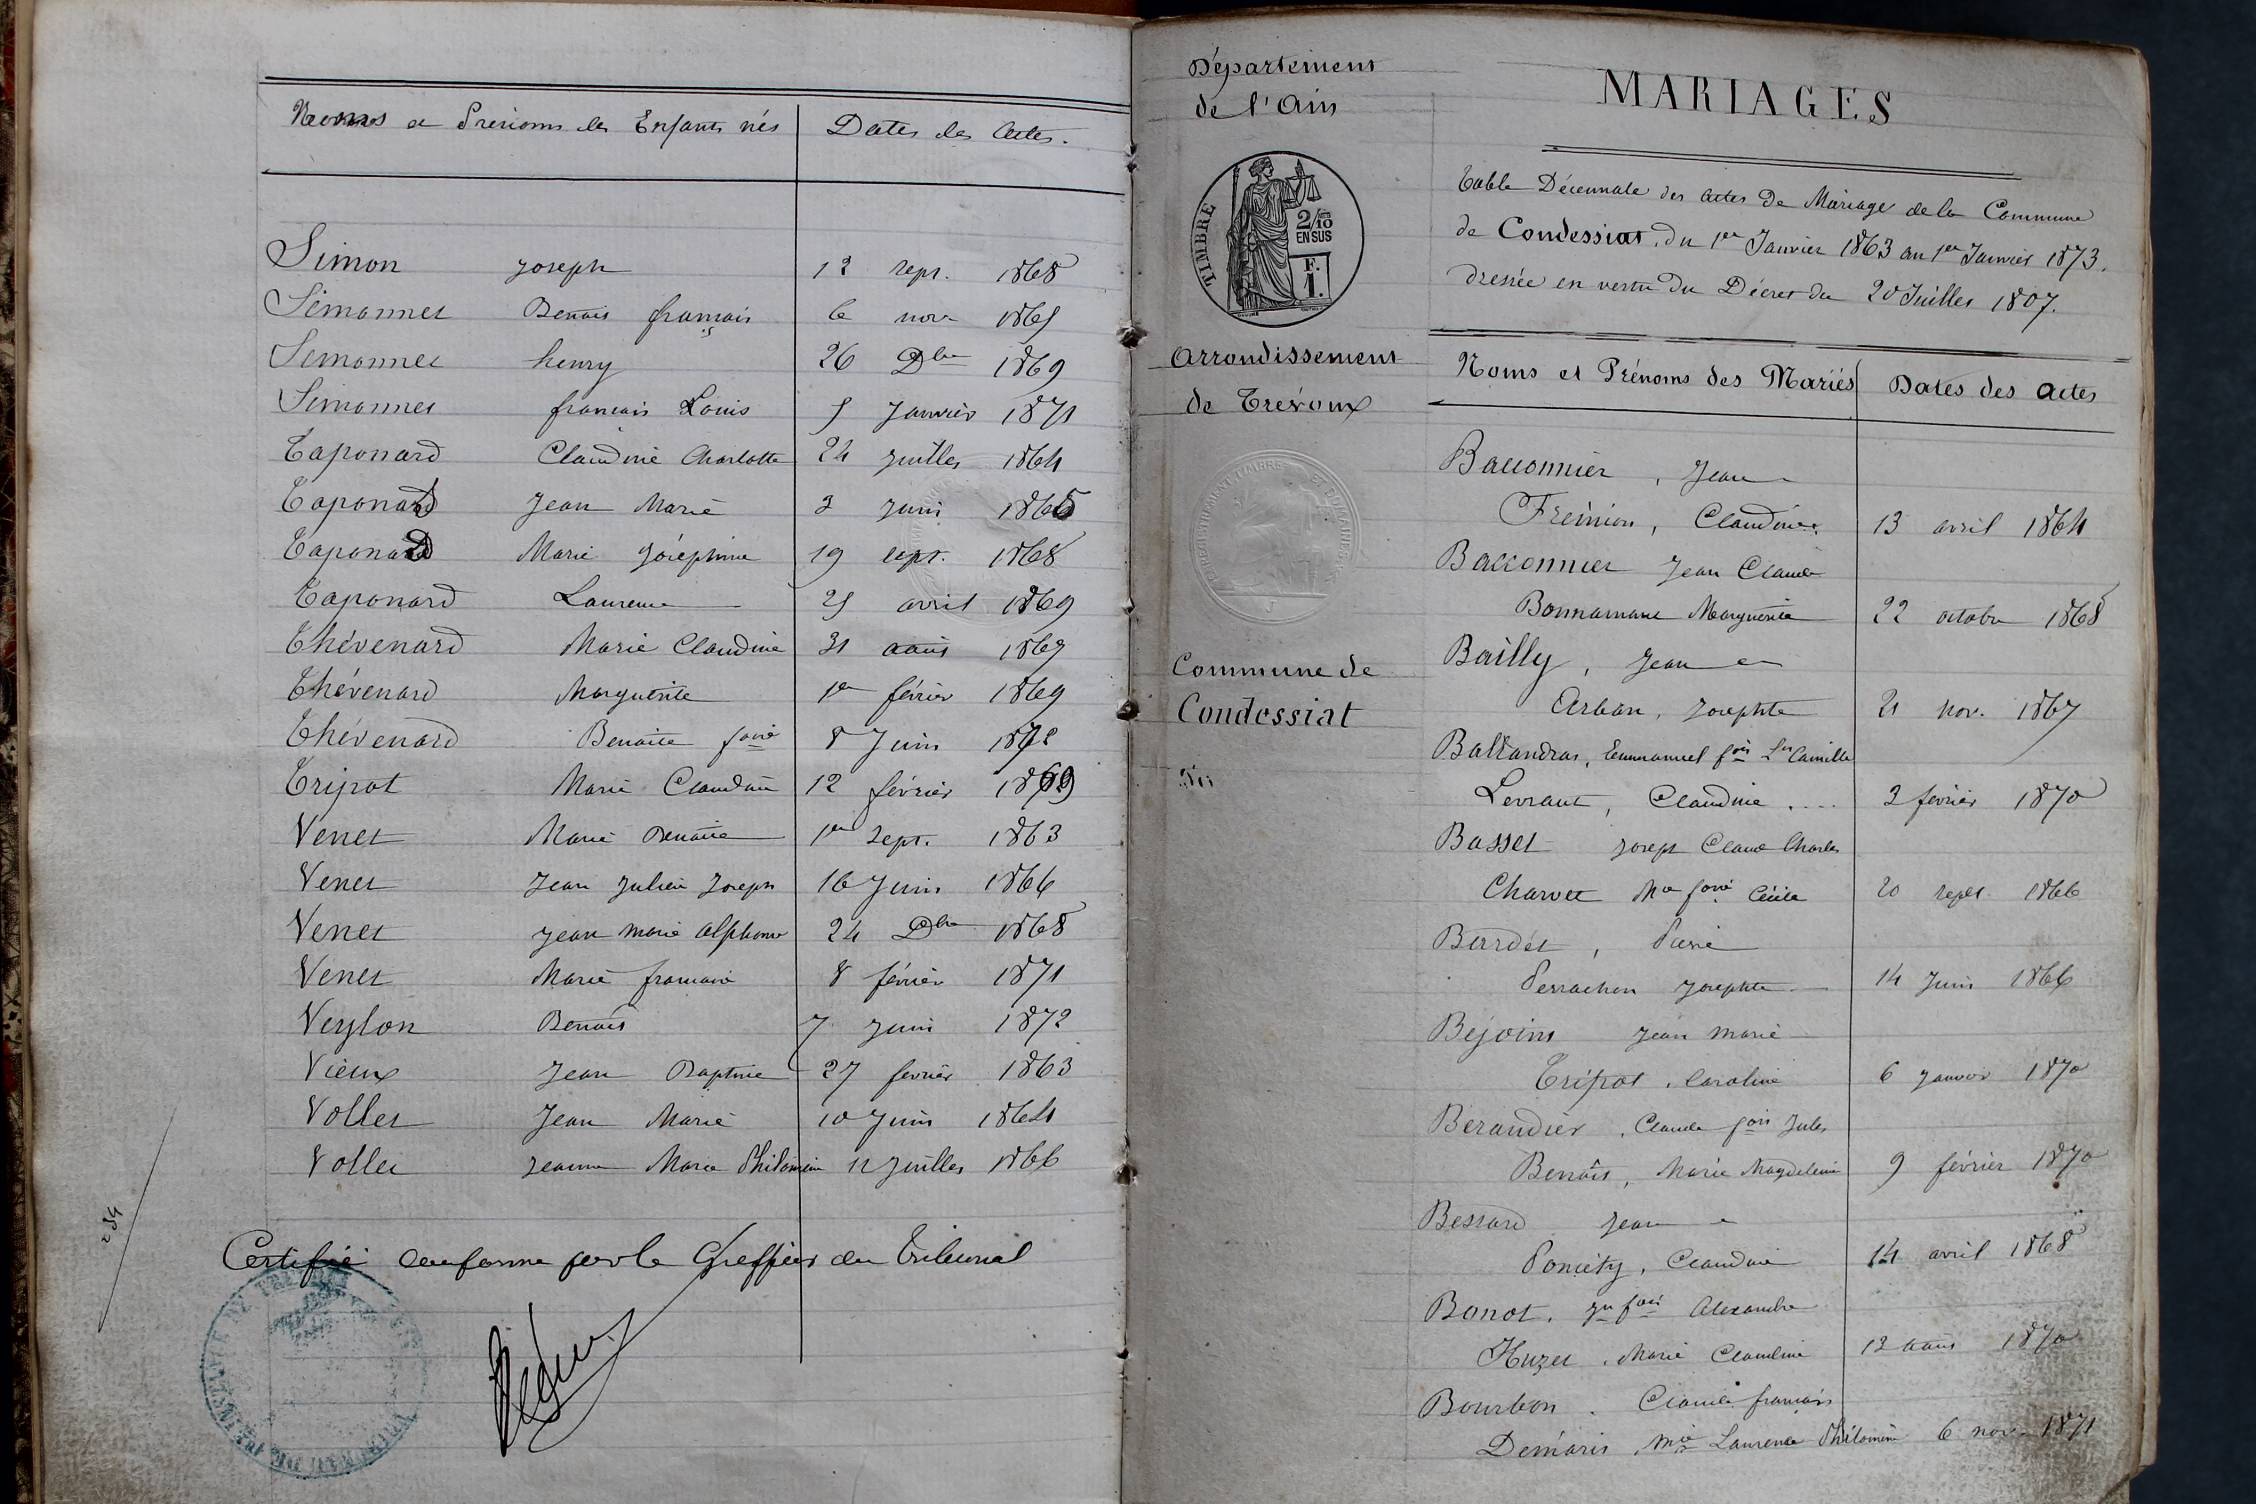 Noms et Prénoms des Enfants nés Dates des Actes.
Simon Joseph 12 sept. 1868
Simonnet Benoit français 6 nov. 1865
Simonnet henry 26 Dbre 1869
Simonnet français Louis 5 Janvier 1871
Taponard Claudine Charlotte 24 juillet 1864
Taponard Jean Marie 3 juin 1865
Taponard Marie Joséphine 19 sept. 1868
Taponard Laurence 25 avril 1869
Thévenard Marie Claudine 31 août 1867
Thévenard Marguerite 1er février 1869
Thévenard Benoite 8 Juin
Tripot Marie Claudine 12 février 1869
Venet Marie Benoite 1er sept. 1863
Venet Jean Julien Joseph 16 Juin 1866
Venet Jean marie alphonse 24 Dbre 1868
Venet Marie française 8 février 1871
Veylon Benoit 7 juin 1872
Vieux Jean Baptiste 27 fevrier 1863
Vollet Jean Marie 10 Juin 1864
Vollet Jeanne Marie Philomène 12 Juillet 1866
254
Certifié conforme par le Greffier du Tribunal
Département
de l'Ain
TIMBRE
2/10
EN SUS
F.
1.
Arrondissement
de Trévoux
ENREGISTREMENT TIMBRE ET DOMAINES
Commune de
Condessiat
MARIAGES
Table Décennale des actes de Mariage de la Commune
de Condessiat, du 1er Janvier 1863 au 1er Janvier 1873,
dressée en vertu du Décret du 20 Juillet 1807.
Noms et Prénoms des Mariés Dates des actes
Bacconnier, Jean
Fremion, Claudine. 13 avril 1864
Bacconnier Jean Claude
Bonnamant Marguerite 22 octobre 1868
Bailly, Jean et
Arban, Josephte 21 nov. 1867
Ballandras, Emmanuel fois Camille
Levraut, Claudine.... 3 fevrier 1870
Basset Joseph Claude Charles
Charvet Mie Cécile 20 sept. 1866
Bardet, Pierre
Perrachon Josephte 14 Juin 1866
Bejoint Jean Marie
Tripot, Caroline 6 Janvier 1870
Berandier, Claude fois Jules
Benoit, Marie Magdeleine 9 février 1870
Bessard Jean et
Poncéty, Claudine 14 avril 1868
Bonot, Jn fois Alexandre
Huzet, Marie Claudine 12 août 1870
Bourbon. Claude français
Demaris Mie Laurence Philomène 6 nov. 1871